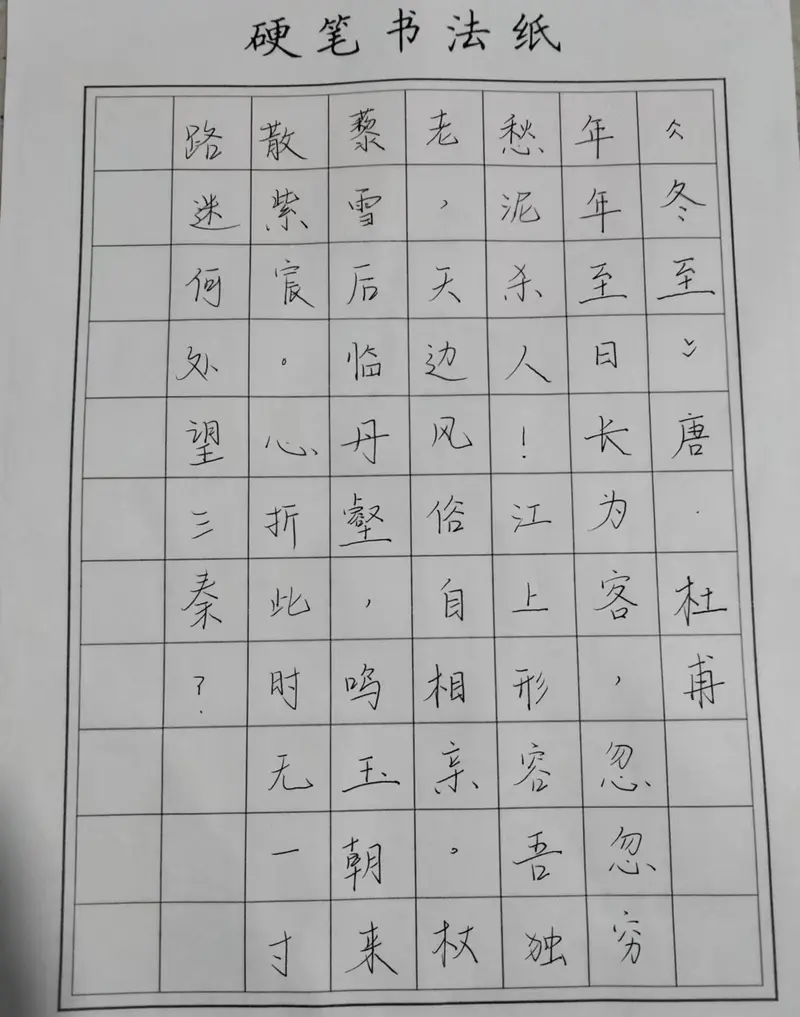 硬笔书法纸
《冬至》唐·杜甫
年年至日长为客，忽忽穷
愁泥杀人！江上形容吾独
老，天边风俗自相亲。杖
藜雪后临丹壑，鸣玉朝来
散紫宸。心折此时无一寸
路迷何处望三秦？